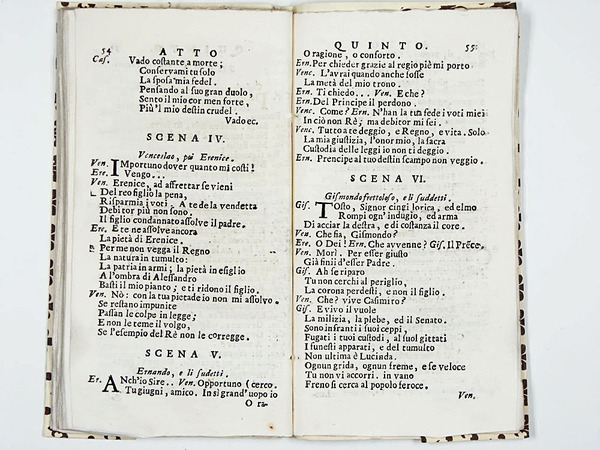 54 ATTO
Cas. Vado costante a morte;
Conservami tu solo
La sposa mia fedel.
Pensando al suo gran duolo,
Sento il mio cor men forte,
Più'l mio destin crudel.
Vado ec.
SCENA IV.
Venceslao, poi Erenice.
Ven. Importuno dover quanto mi costi!
Ere. Vengo...
Ven. Erenice, ad affrettar se vieni
Del reo figlio la pena,
Risparmia i voti. A te de la vendetta
Debitor più non sono.
Il figlio condannato assolve il padre.
Ere. E te ne assolve ancora
La pietà di Erenice.
Per me non vega il Regno
La natura in tumulto:
La patria in armi; la pietà in esiglio
A l'ombra di Alessandro
Basti il mio pianto; e ti ridono il figlio.
Ven. Nò: con la tua pietade io non mi assolvo.
Se restano impunite
Passan le colpe in legge;
E non le teme il volgo,
Se l'esempio del Rè non le corregge.
SCENA V.
Ernando, e li sudetti.
Er. Anch'io Sire.. Ven. Opportuno (cerco.
Tu giugni, amico. In sì grand'uopo io
O ra-
QUINTO. 55
O ragione, o conforto.
Ern. Per chieder grazie al regio piè mi porto
Venc. L'avrai quando anche fosse
La metà del mio trono.
Ern. Ti chiedo... Ven. E che?
Ern. Del Principe il perdono.
Venc. Come? Ern. N'han la tua fede i voti miei
In ciò non Rè; ma debitor mi sei.
Venc. Tutto a te deggio, e Regno, e vita. Solo
La mia giustizia, l'onor mio, la sacra
Custodia delle leggi io non ti deggio.
Ern. Prencipe al tuo destin scampo non veggio.
SCENA VI.
Gismondo frettoloso, e li suddetti.
Gis. Tosto, Signor cingi lorica, ed elmo
Rompi ogn'indugio, ed arma
Di acciar la destra, e di costanza il core.
Ven. Che fia, Gismondo?
Ere. O Dei! Ern. Che avvenne? Gis. Il Prēce.
Ven. Morì. Per esser giusto
Già finii d'esser Padre.
Gis. Ah se riparo
Tu non cerchi al periglio,
La corona perdesti, e non il figlio.
Ven. Che? vive Casimiro?
Gis. E vivo il vuole
La milizia, la plebe, ed il Senato.
Sono infranti i suoi ceppi,
Fugati i tuoi custodi, al suol gittati
I funesti apparati, e del tumulto
Non ultima è Lucinda.
Ognun grida, ognun freme, e se veloce
Tu non v'accorri, in vano
Freno si cerca al popolo feroce.
Ven.